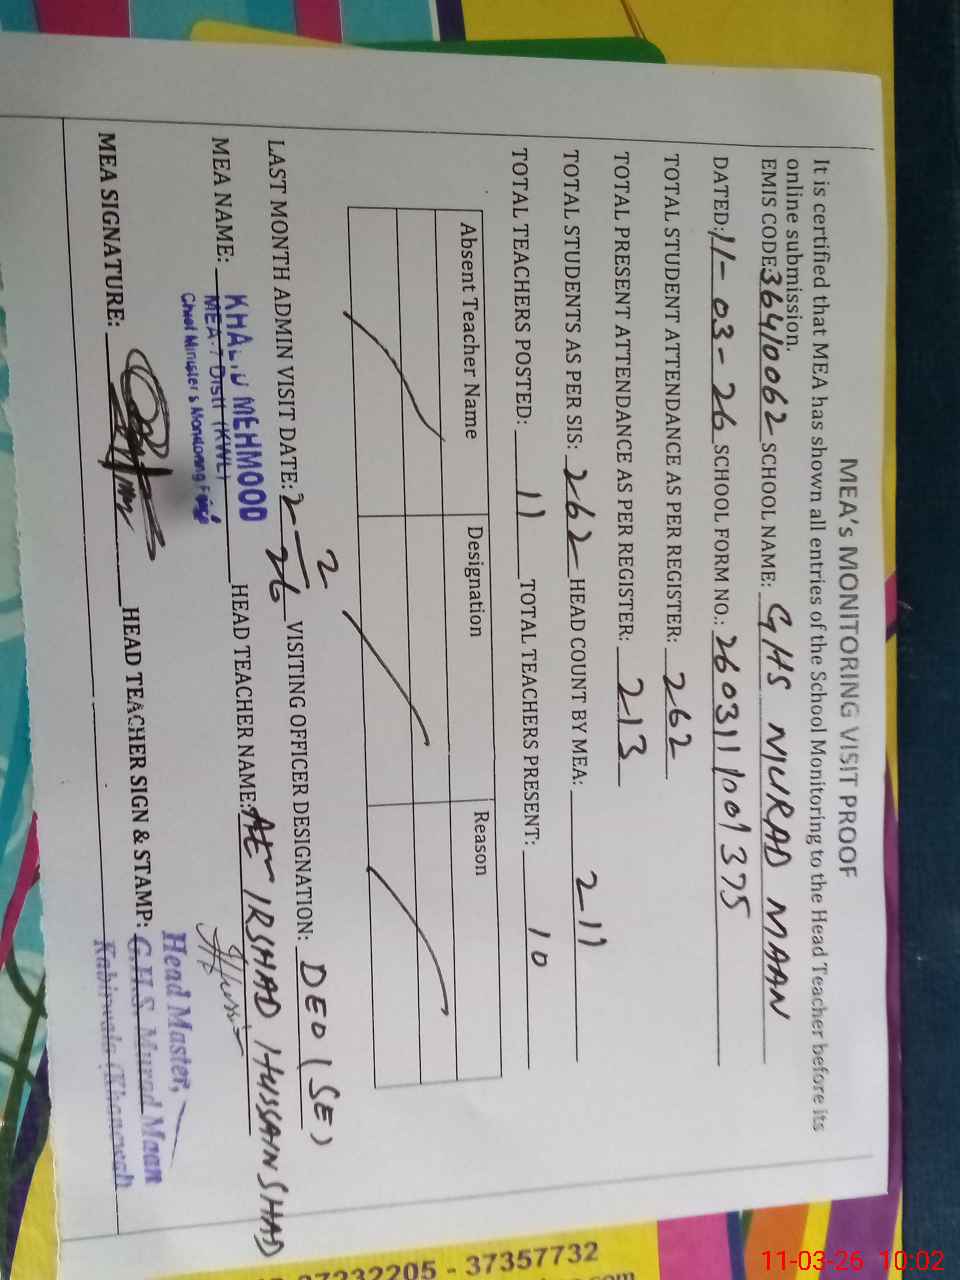 MEA's MONITORING VISIT PROOF
It is certified that MEA has shown all entries of the School Monitoring to the Head Teacher before its
online submission.
EMIS CODE: 36410062 SCHOOL NAME: GHS MURAD MAAN
DATED: 11-03-26 SCHOOL FORM NO.: 2603111001375
TOTAL STUDENT ATTENDANCE AS PER REGISTER: 262
TOTAL PRESENT ATTENDANCE AS PER REGISTER: 213
TOTAL STUDENTS AS PER SIS: 262 HEAD COUNT BY MEA: 211
TOTAL TEACHERS POSTED: 11 TOTAL TEACHERS PRESENT: 10
Absent Teacher Name Designation Reason
LAST MONTH ADMIN VISIT DATE: 2-2-26 VISITING OFFICER DESIGNATION: DEO (SE)
MEA NAME: KHALID MEHMOOD HEAD TEACHER NAME: IRSHAD HUSSAIN SHAD
MEA-7 Distt (KWL)
Chief Minister's Monitoring Force
MEA SIGNATURE: HEAD TEACHER SIGN & STAMP: Head Master,
G.H.S. Murad Maan
Kabirwala (Khanewal)
37232205 - 37357732
11-03-26 10:02